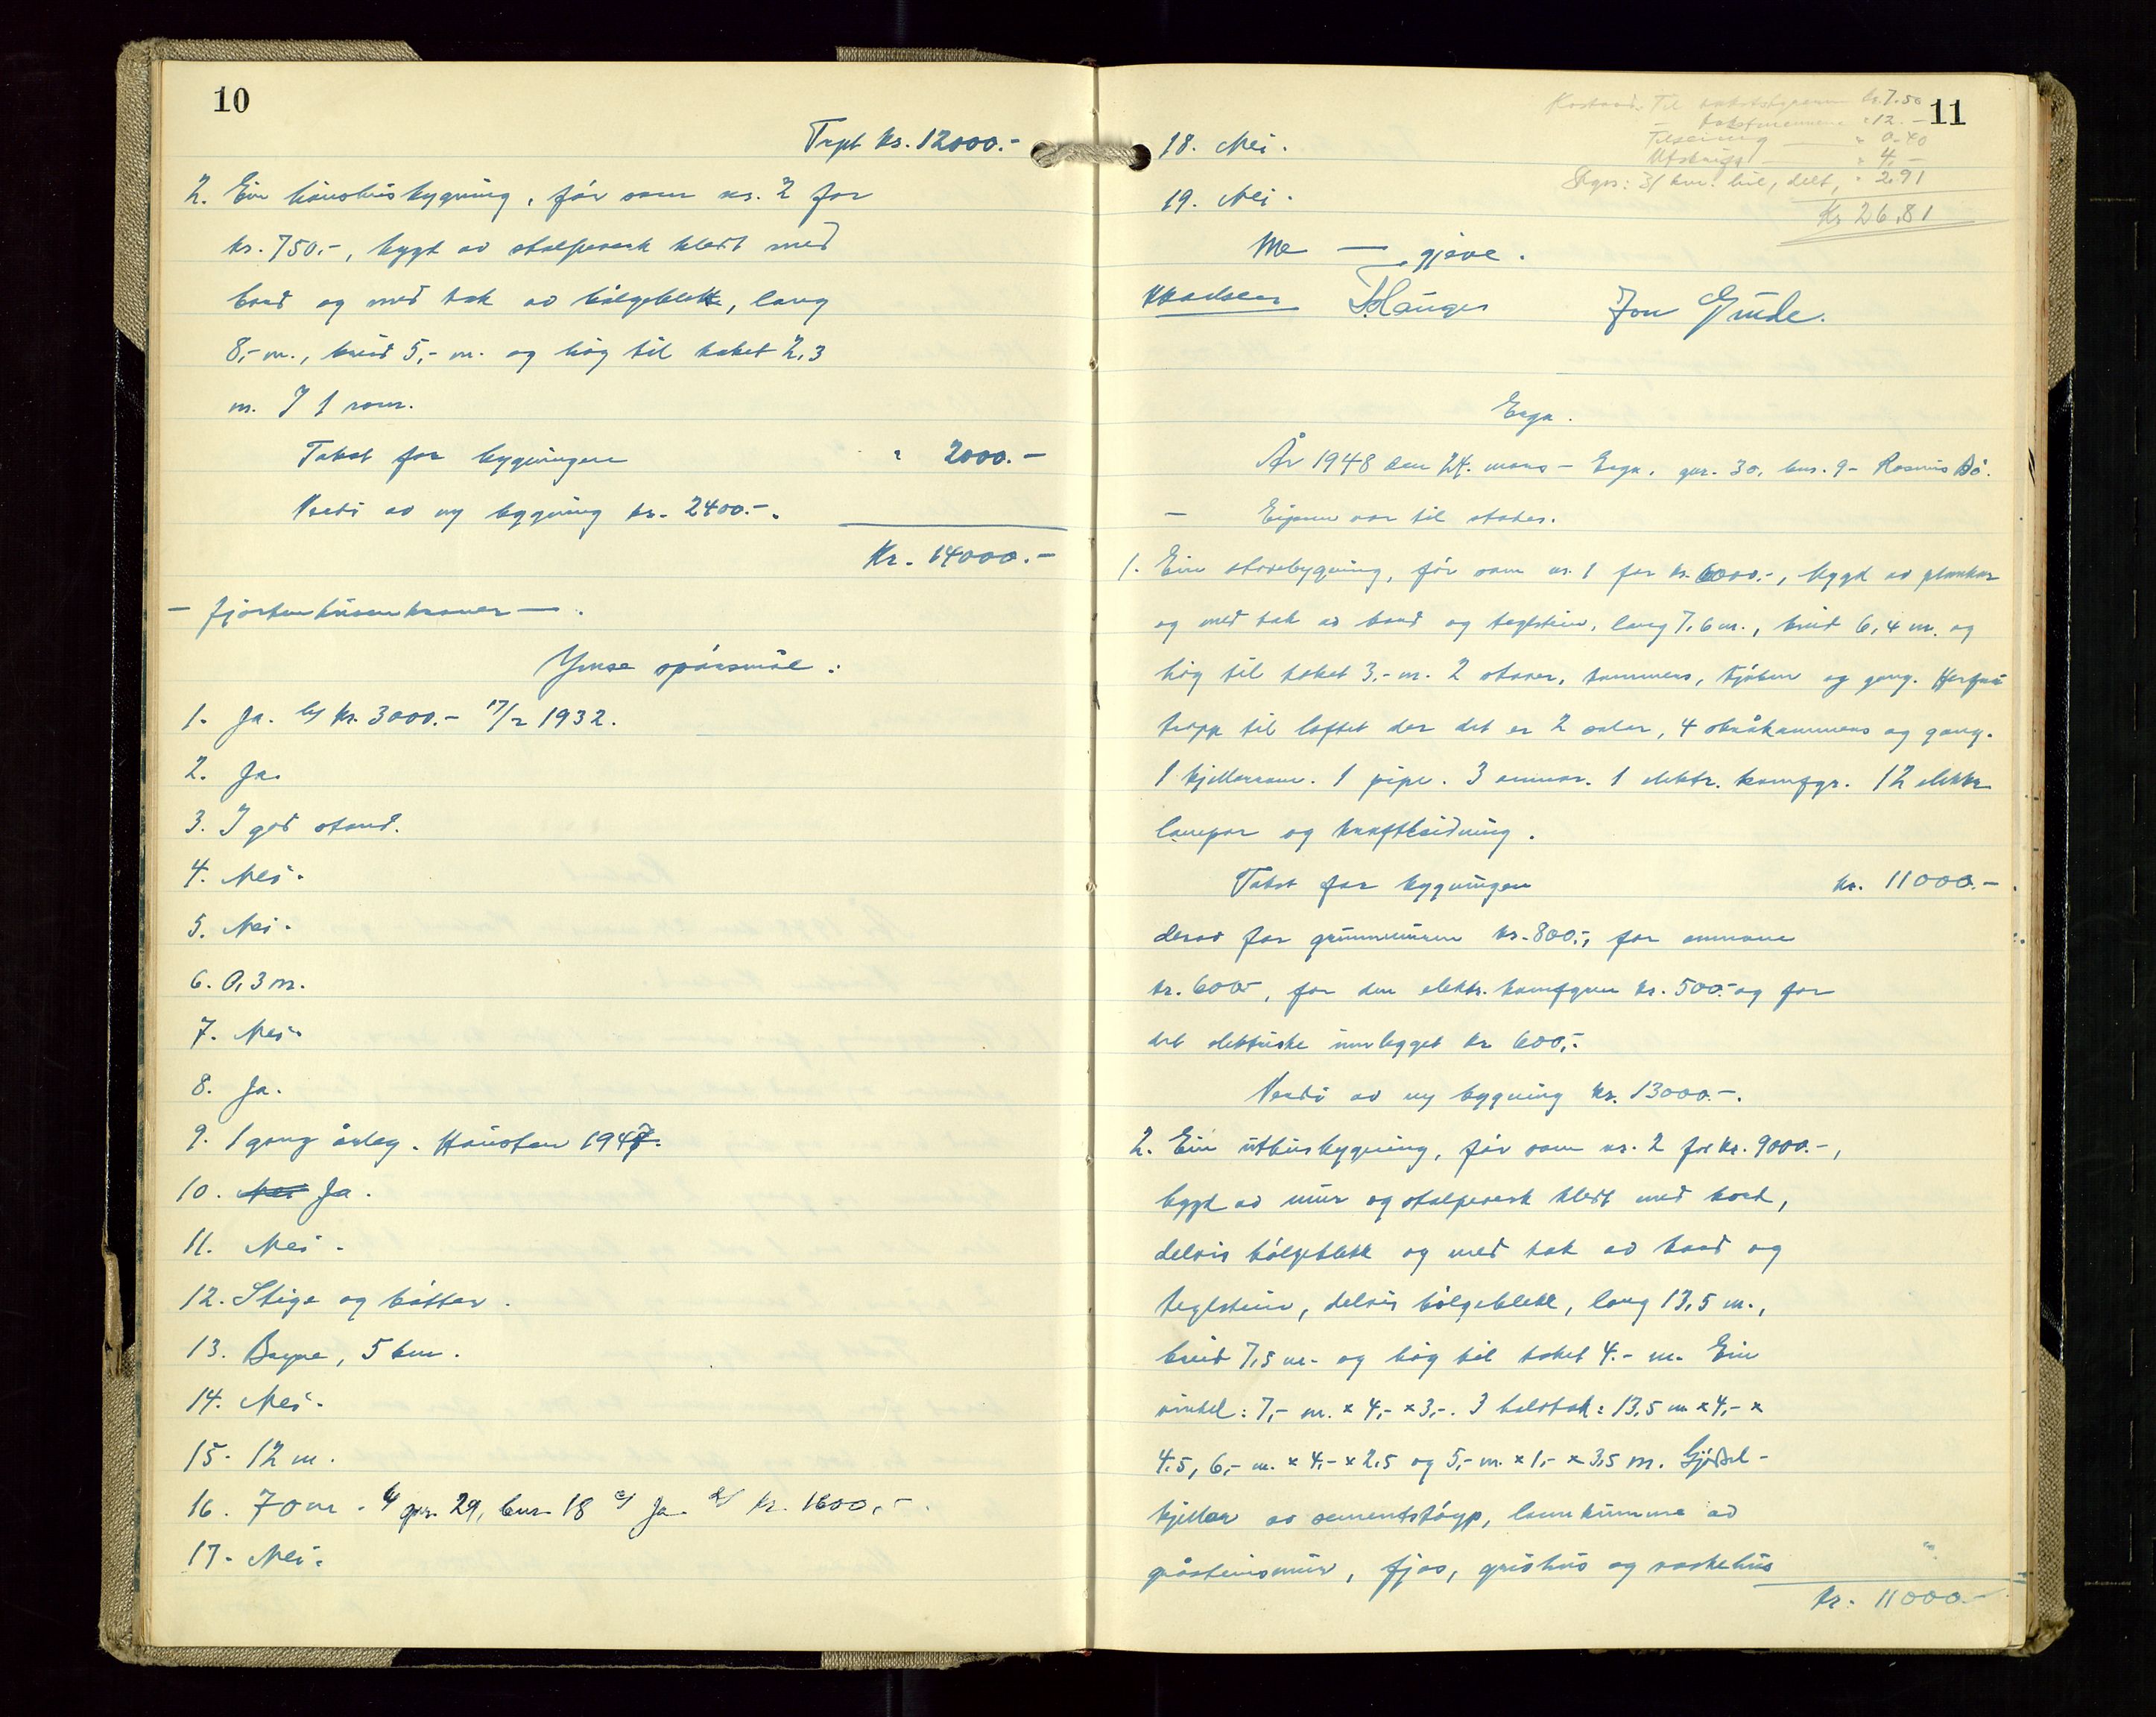 10
Trpt kr. 12000.-
2. Ein hønshusbygning, før som nr. 2 for
kr. 750.-, bygt av stolpeverk kledt med
bord og med tak av bølgeblekk, lang
8,- m., breid 5,- m. og høg til taket 2,3
m. I 1 rom.
Takst for bygningen " 2000.-
Verdi av ny bygning kr. 2400.-.
Kr. 14000.-
- fjortentusenkroner - .
Ymse spørsmål:
1. Ja. b/ kr. 3000.- 17/2 1932.
2. Ja.
3. I god stand.
4. Nei.
5. Nei.
6. 0,3 m.
7. Nei.
8. Ja.
9. 1 gong årleg. Hausten 1947.
10. Nei Ja.
11. Nei.
12. Stige og bøtter.
13. Bryne, 5 km.
14. Nei.
15. 12 m.
16. 70 m. b/ gnr. 29, bnr. 18 c/ Ja d/ kr. 1600,-.
17. Nei.
11
Kostnad: Til takstстyraren kr. 7.50
- takstmennene " 12.-
Tilseining - " 0.40
Utskrift - " 4,-
Skyss: 31 km. bil, delt, " 2.91
Kr 26,81
18. Nei.
19. Nei.
Me - gjeve.
Hauger Jon Gjude.
Erga.
År 1948 den 24. mars - Erga, gnr. 30, bnr. 9 - Rasmus Bø.
- Eigaren var til stades.
1. Ein stovebygning, før som nr. 1 for kr. 6000.-, bygd av plankar
og med tak av bord og teglstein, lang 7,6 m., breid 6,4 m. og
høg til taket 3,- m. 2 stover, kammers, kjøken og gang. Herfrå
trapp til loftet der det er 2 saler, 4 skråkammers og gang.
1 kjellarrom. 1 pipe. 3 omnar. 1 elektr. komfyr. 12 elektr.
lampor og kraftleidning.
Takst for bygningen kr. 11000.-
derav for grunnmuren kr. 800.-, for omnane
kr. 600.-, for den elektr. komfyren kr. 500.- og for
det elektriske innlegget kr 600,-.
Verdi av ny bygning kr. 13000.-.
2. Ein uthusbygning, før som nr. 2 for kr. 9000.-,
bygd av mur og stolpeverk kledt med bord,
delvis bølgeblekk og med tak av bord og
teglstein, delvis bølgeblekk, lang 13,5 m.,
breid 7,5 m. og høg til taket 4.- m. Ein
vinkel: 7,- m. × 4,- × 3,-. 3 halvtak: 13,5 m × 4,- ×
4,5, 6,- m. × 4,- × 2,5 og 5,- m. × 1,- × 3,5 m. Gjødsel-
kjellar av sementstøyp, lannkumme av
gråsteinsmur, fjos, grishus og vaskehus
kr. 11000.-